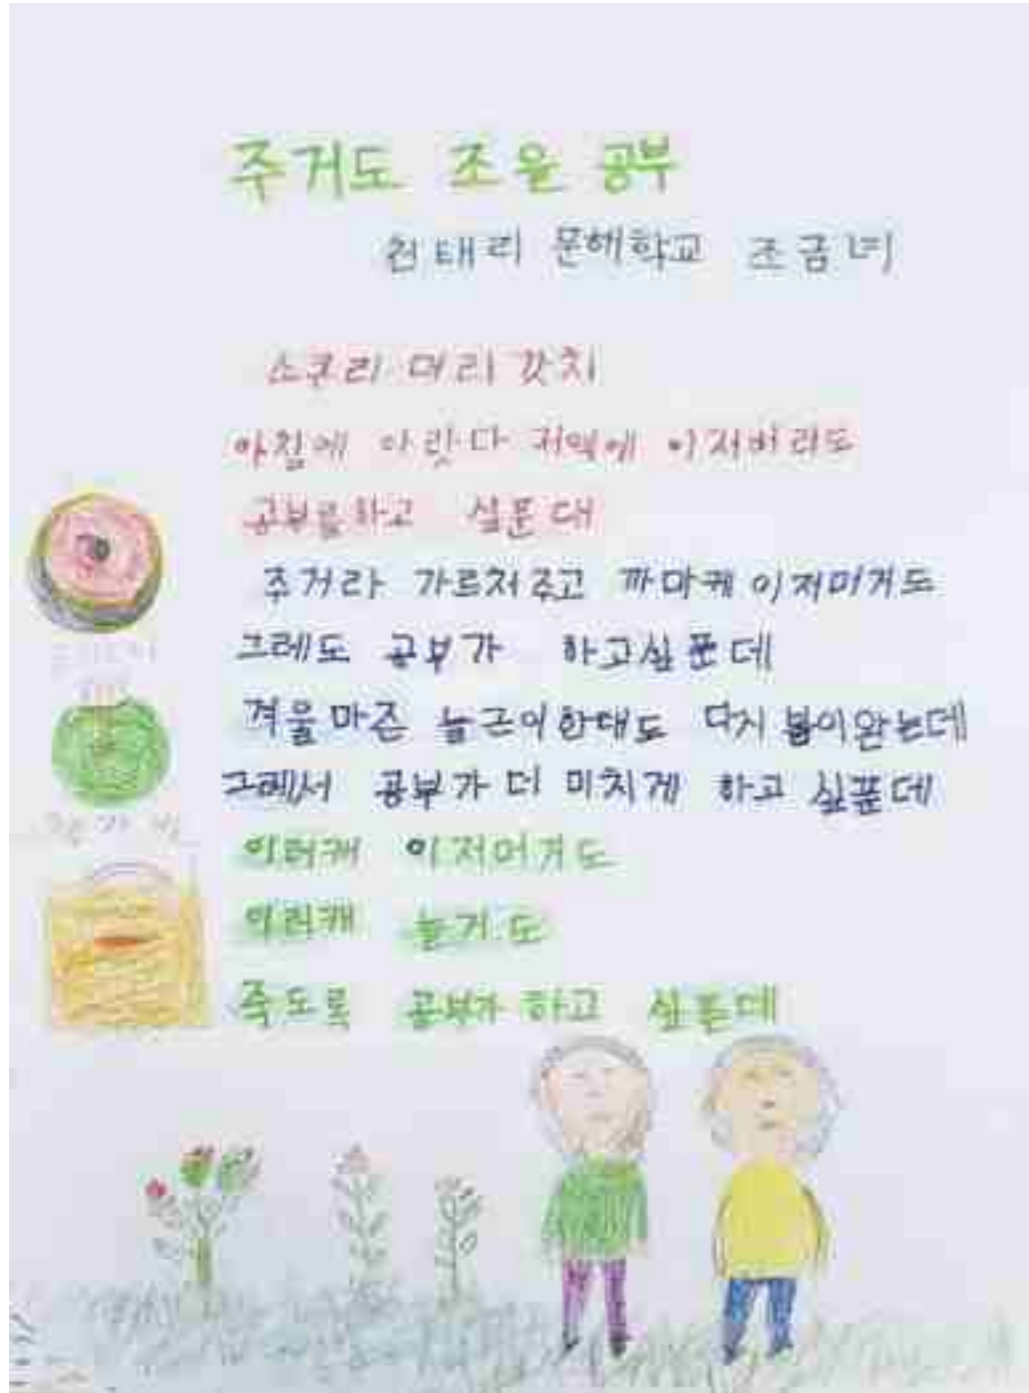 주거도 조은 공부
천태리 문해학교 조금녀
소쿠리 머리 갓치
아침에 아랏다 저역에 이저버리도
공부를하고 싶푼대
주거라 가르처주고 까마케 이저머거도
그레도 공부가 하고싶푼데
겨울마즌 늘근이한태도 다시 봄이완는데
그레서 공부가 더 미치게 하고 싶푼데
이러캐 이저머거도
이러캐 늘거도
죽도록 공부가 하고 싶푼데